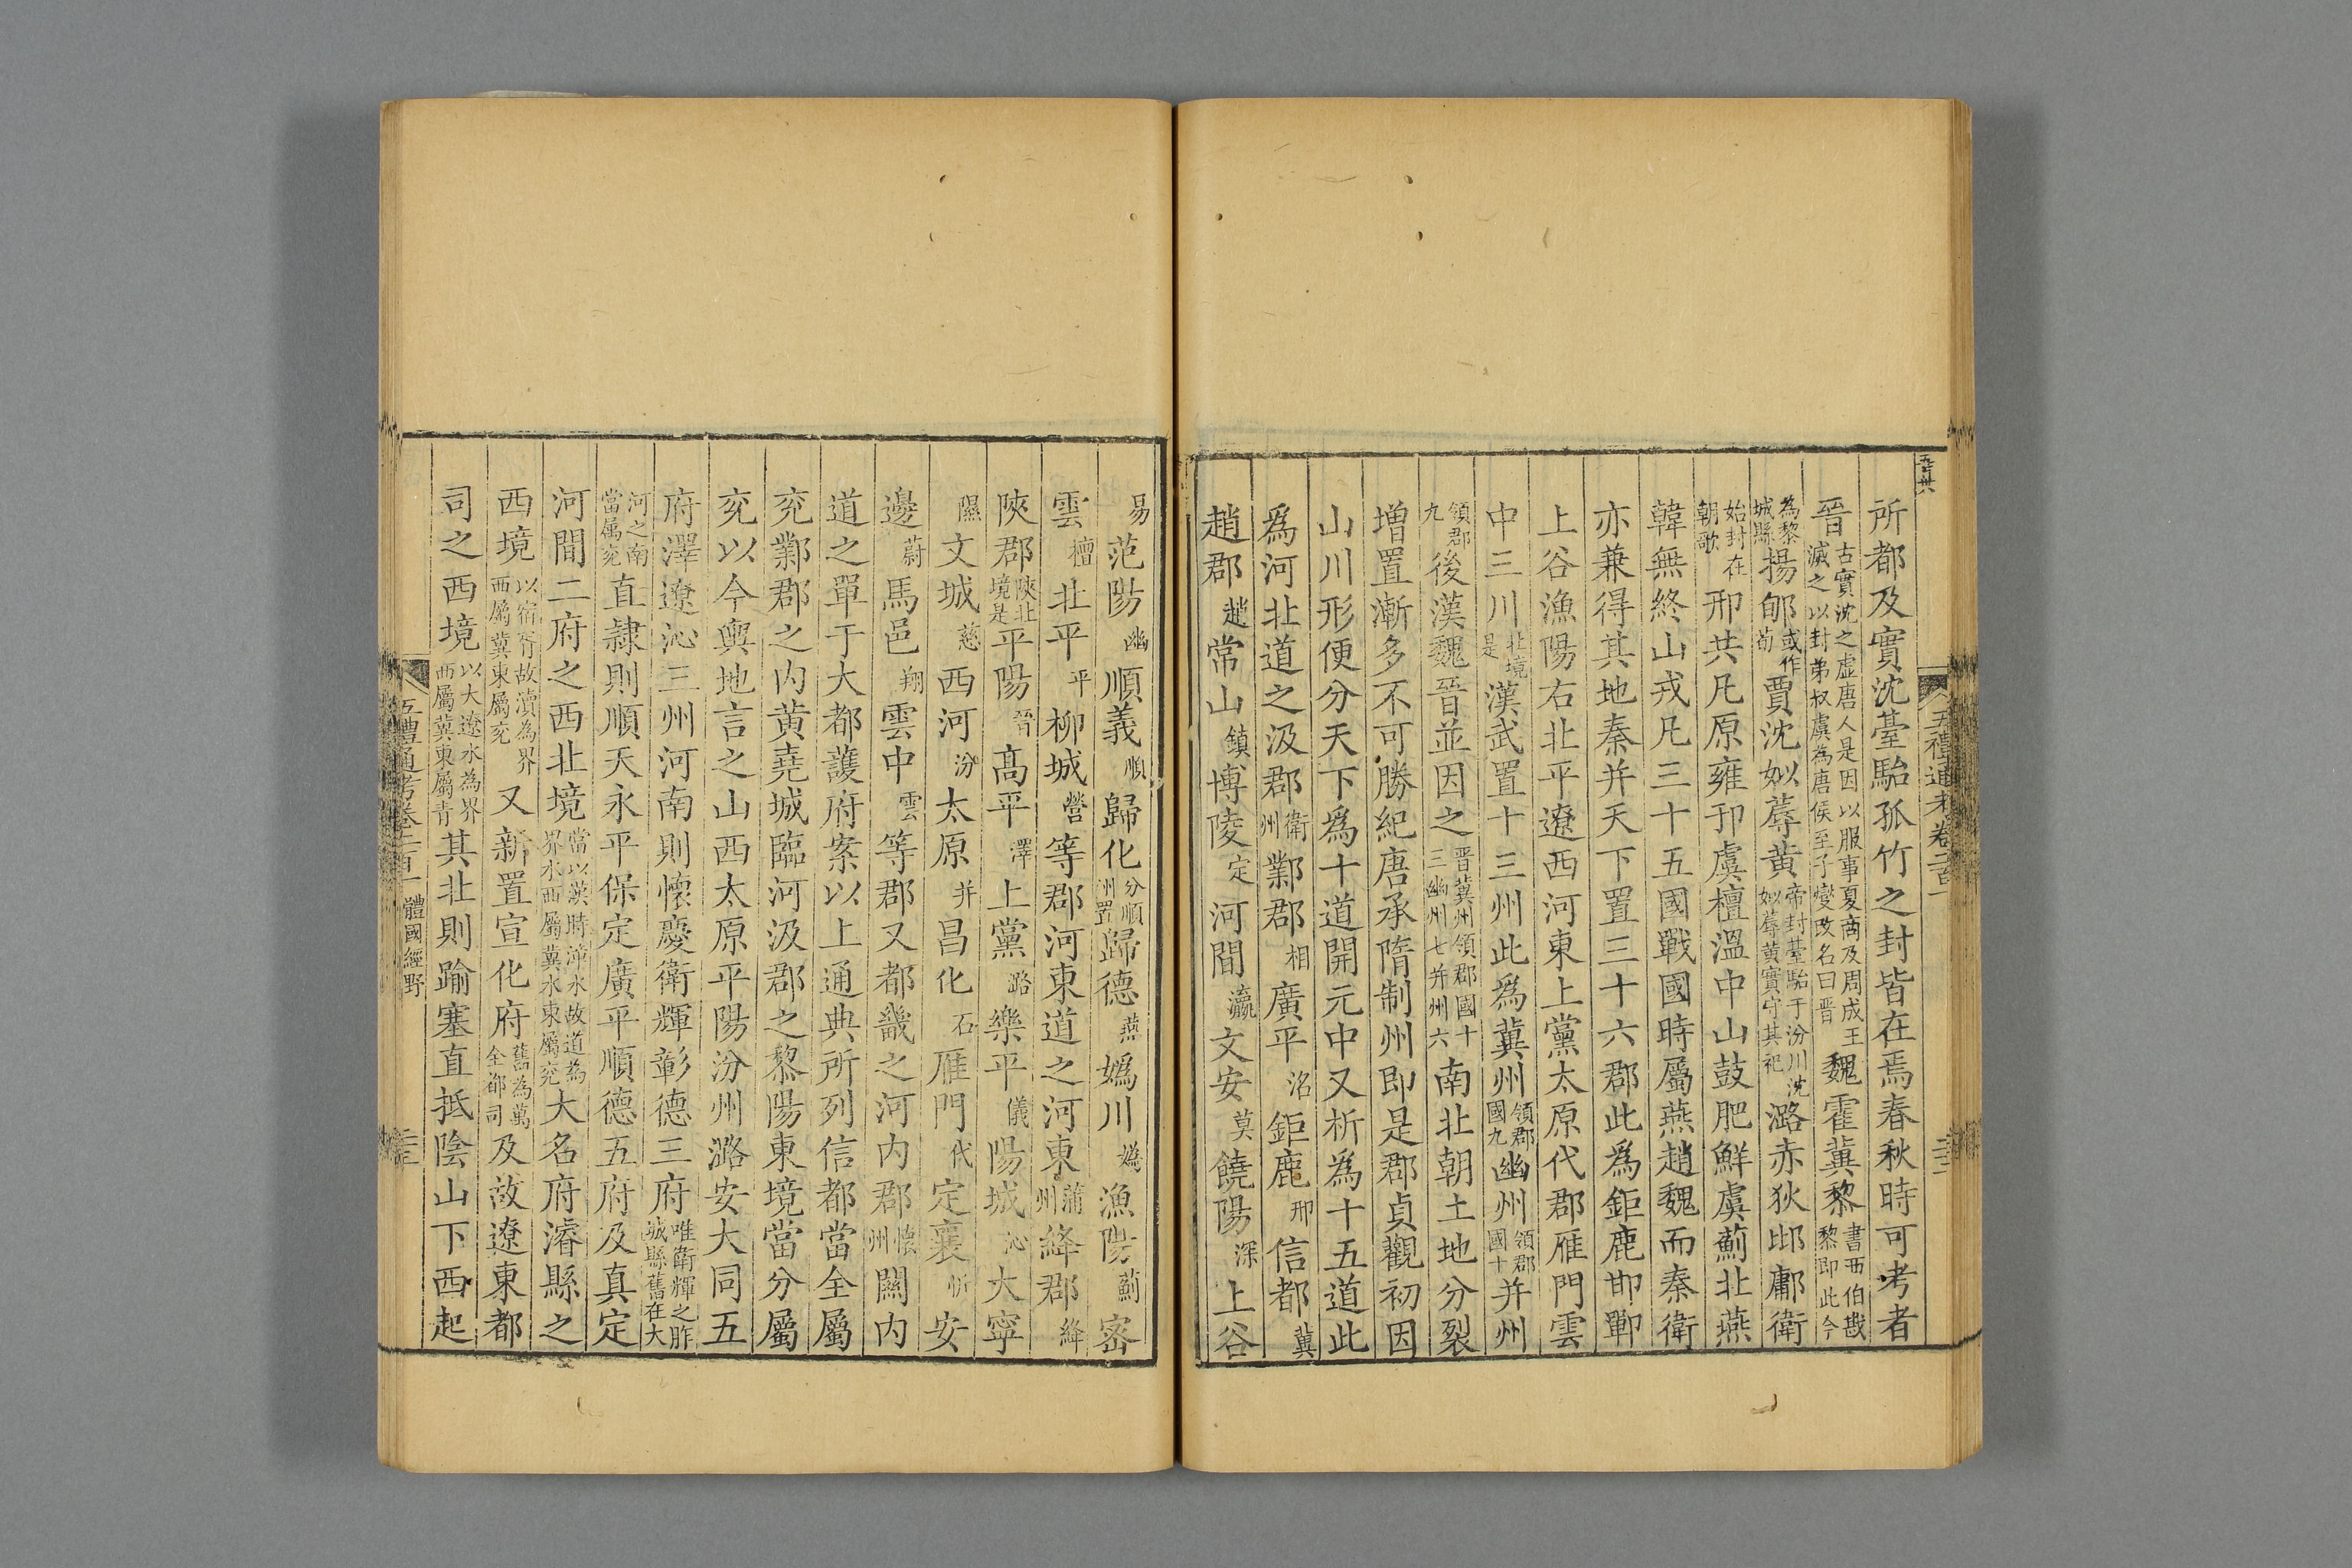 五百卅六
五禮通考卷二百一
所都及實沈臺駘孤竹之封皆在焉春秋時可考者
晉古實沈之虛唐人是因以服事夏商及周成王滅之以封弟叔虞為唐侯至子燮改名曰晉魏霍冀黎書西伯戡黎即此今
為黎城縣揚郇或作荀賈沈姒蓐黄帝封臺駘于汾川沈姒蓐黄實守其祀潞赤狄邶鄘衛
始封在朝歌邢共凡原雍邘虞檀溫中山鼓肥鮮虞薊北燕
韓無終山戎凡三十五國戰國時屬燕趙魏而秦衛
亦兼得其地秦并天下置三十六郡此為鉅鹿邯鄲
上谷漁陽右北平遼西河東上黨太原代郡雁門雲
中三川北境是漢武置十三州此為冀州領郡國九幽州領郡國十并州
領郡九後漢魏晉並因之晉冀州領郡國十三幽州七并州六南北朝土地分裂
增置漸多不可勝紀唐承隋制州即是郡貞觀初因
山川形便分天下為十道開元中又析為十五道此
為河北道之汲郡衛州鄴郡相廣平洺鉅鹿邢信都冀
趙郡趙常山鎮博陵定河間瀛文安莫饒陽深上谷
易范陽幽順義順歸化分順州置歸德燕媯川媯漁陽薊密
雲檀北平平柳城營等郡河東道之河東蒲州絳郡絳
陝郡陝北境是平陽晉高平澤上黨潞樂平儀陽城沁大寧
隰文城慈西河汾太原并昌化石雁門代定襄忻安
邊蔚馬邑朔雲中雲等郡又都畿之河內郡懷州關內
道之單于大都護府案以上通典所列信都當全屬
兗鄴郡之內黄堯城臨河汲郡之黎陽東境當分屬
兗以今輿地言之山西太原平陽汾州潞安大同五
府澤遼沁三州河南則懷慶衛輝彰德三府唯衛輝之胙城縣舊在大
河之南當屬兗直隸則順天永平保定廣平順德五府及真定
河間二府之西北境當以漢時漳水故道為界水西屬冀水東屬兗大名府濬縣之
西境以宿胥故瀆為界西屬冀東屬兗又新置宣化府舊為萬全都司及故遼東都
司之西境以大遼水為界西屬冀東屬青其北則踰塞直抵陰山下西起
五禮通考卷二百一 體國經野